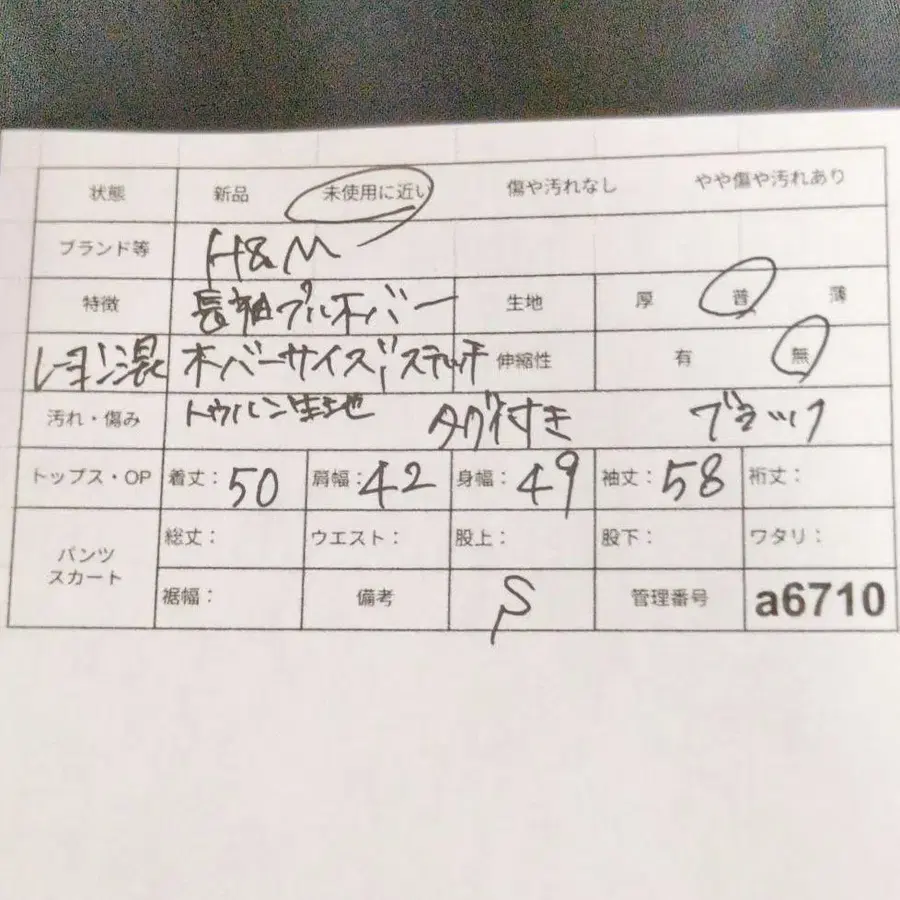 状態 新品 未使用に近い 傷や汚れなし やや傷や汚れあり
ブランド等 H&M
特徴 長袖プルオーバー 生地 厚 普 薄
レーヨン混 オーバーサイズ ステッチ 伸縮性 有 無
汚れ・傷み トゥルン生地 タグ付き ブラック
トップス・OP 着丈: 50 肩幅: 42 身幅: 49 袖丈: 58 裄丈:
パンツ スカート 総丈: ウエスト: 股上: 股下: ワタリ:
裾幅: 備考 S 管理番号 a6710